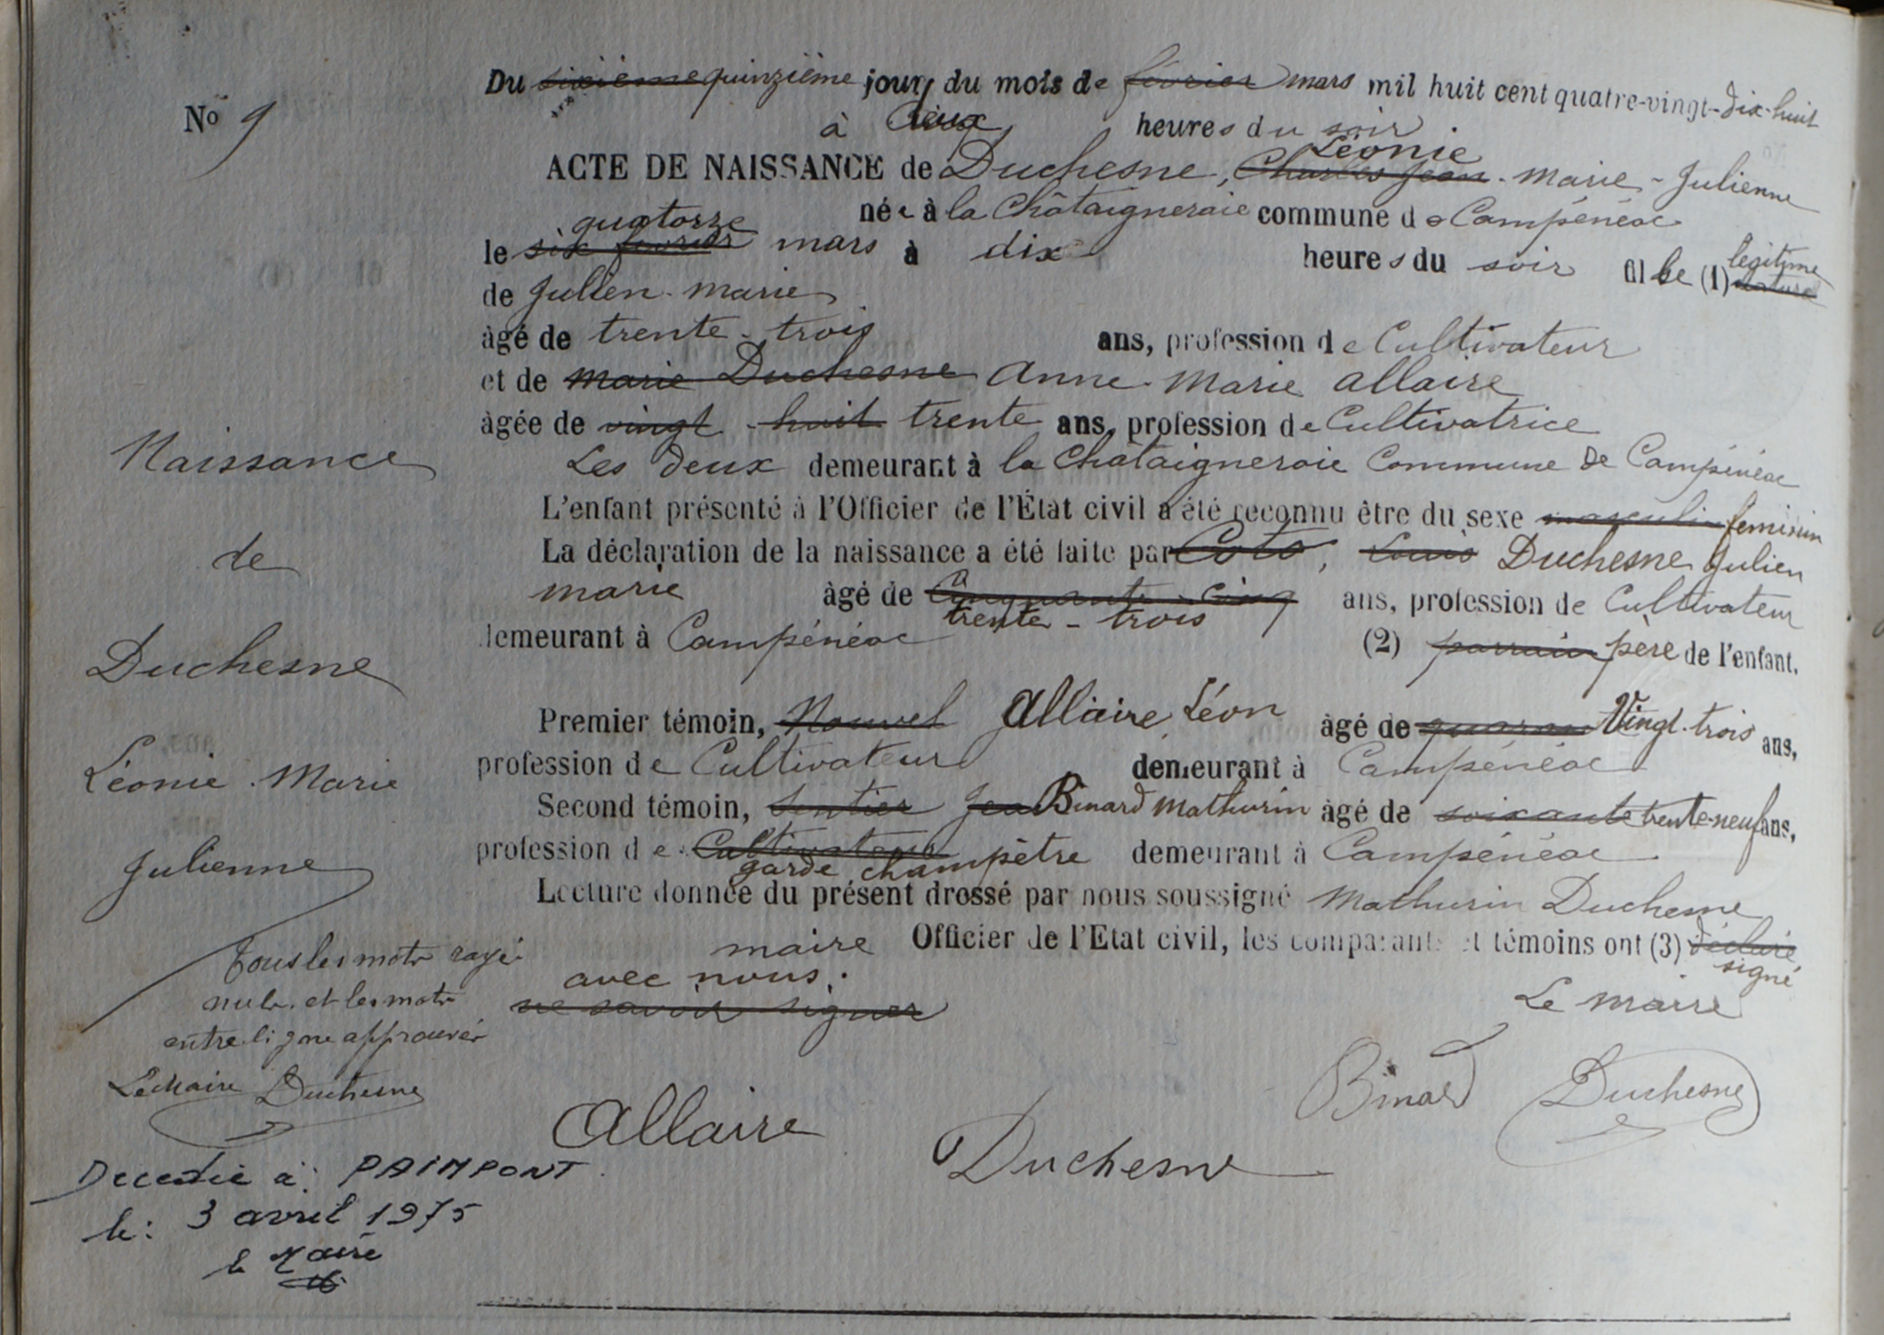 Nº 9
Du ~~sixième~~ quinzième jour, du mois de ~~février~~ mars mil huit cent quatre-vingt-dix-huit
à deux heures du soir
Léonie
ACTE DE NAISSANCE de Duchesne, ~~Charles Jean~~ - Marie - Julienne
née à la Châtaigneraie commune de Campénéac
quatorze
le ~~six février~~ mars à dix heures du soir fille (1) légitime ~~naturel~~
de Julien-Marie
âgé de trente-trois ans, profession de Cultivateur
et de ~~Marie Duchesne~~ Anne-Marie Allaire
âgée de ~~vingt-huit~~ trente ans, profession de Cultivatrice
Les deux demeurant à la Chataigneraie Commune de Campénéac
L'enfant présenté à l'Officier de l'État civil a été reconnu être du sexe ~~masculin~~ féminin
La déclaration de la naissance a été faite par ~~Coto, Louis~~ Duchesne Julien
Marie âgé de ~~Cinquante-cinq~~ ans, profession de Cultivateur
trente-trois
demeurant à Campénéac (2) ~~parrain~~ père de l'enfant.
Premier témoin, ~~Nouvel~~ Allaire Léon âgé de Vingt-trois ans,
profession de Cultivateur demeurant à Campénéac
Second témoin, ~~Sentier Jea~~ Binard Mathurin âgé de ~~soixante~~ trente-neuf ans,
profession de ~~Cultivateur~~ garde champêtre demeurant à Campénéac
Lecture donnée du présent drossé par nous soussigné Mathurin Duchesne
maire Officier de l'Etat civil, les comparants et témoins ont (3) ~~déclaré~~
signé
avec nous.
~~ne savoir signer~~
Le maire
Binard Duchesne
Allaire
Duchesne
Naissance
de
Duchesne
Léonie-Marie
Julienne
Tous les mots rayés
nuls et les mots
entre ligne approuvés
Le Maire Duchesne
Decedée à: PAIMPONT
le: 3 avril 1975
le Maire